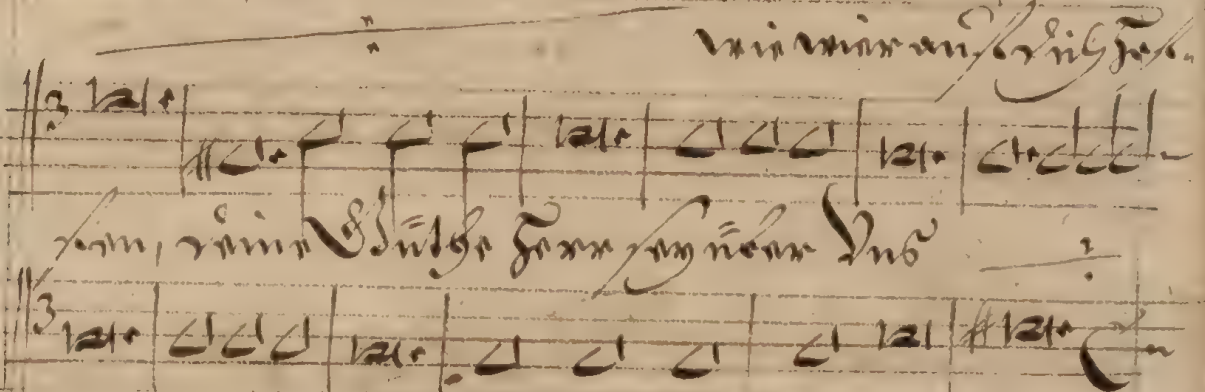 wie wier auf dich hof-
fen, deine Güthe Herr sey über Uns